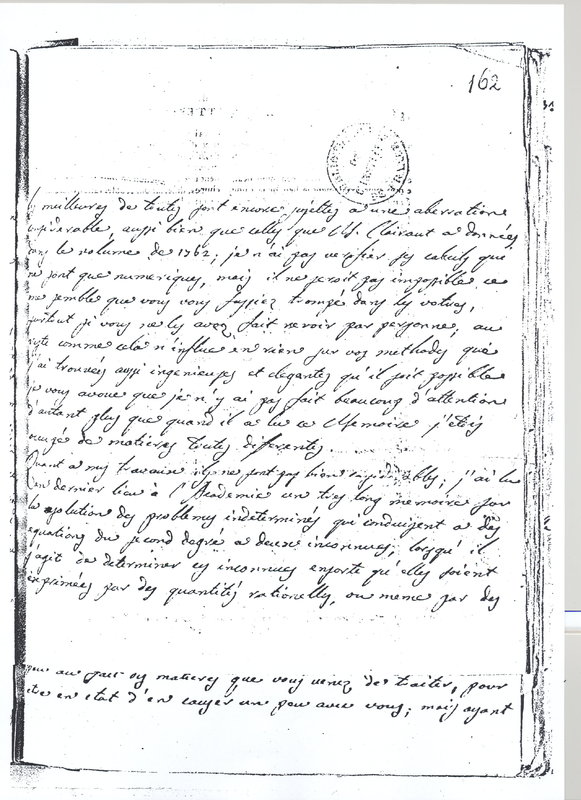 162
les meilleures de toutes sont encore sujettes a une aberration
considerable, aussi bien que celles que M. Clairaut a données
dans le volume de 1762; je n'ai pas verifier ses calculs qui
ne sont que numeriques, mais il ne seroit pas impossible ce
me semble que vous vous fussiez trompé dans les votres,
surtout si vous ne les avez fait revoir par personne; au
reste comme cela n'influe en rien sur vos methodes que
j'ai trouvées aussi ingenieuses et elegantes qu'il soit possible
je vous avoue que je n'y ai pas fait beaucoup d'attention
d'autant plus que quand il a lu ce Memoire j'étois
occupé de matieres toutes differentes.
Quant a mes travaux ils ne sont pas bien considerables; j'ai lu
en dernier lieu à l'Academie un tres long memoire sur
la resolution des problemes indeterminés qui conduisent a des
equations du second degré a deux inconnues, lorsqu'il
s'agit de determiner ces inconnues ensorte qu'elles soient
exprimées par des quantités rationelles, ou meme par des
peu au fait des matieres que vous venez de traiter, pour
etre en etat d'en causer un peu avec vous; mais ayant